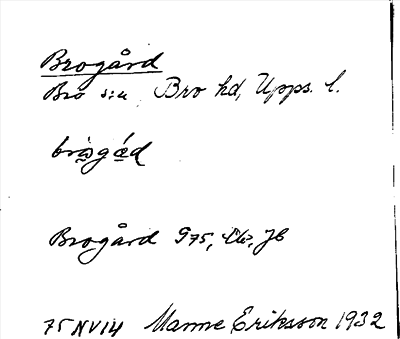 Brogård
Bro s:n, Bro hd, Upps. l.
Brogård G75,
75 NV 14 Manne Eriksson 1932